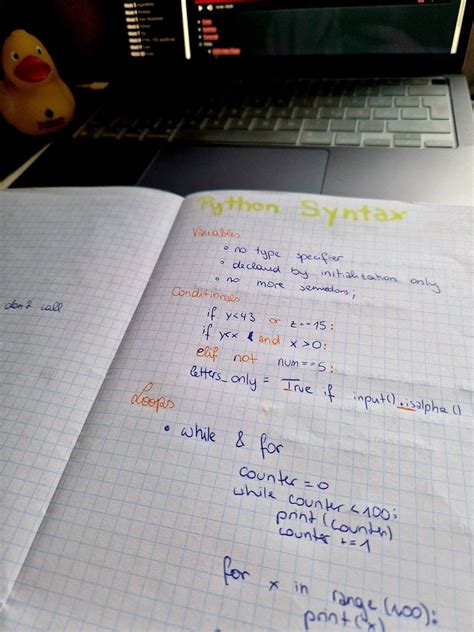 Python Syntax
Variables
• no type specifier
• declared by initialization only
• no more semicolons;
Conditionals
if y<43 or z==15:
if y<x and x>0:
elif not num==5:
letters_only = True if input().isalpha()
Loops
• while & for
counter = 0
while counter < 100:
print (counter)
counter += 1
for x in range (100):
print (x)
don't call